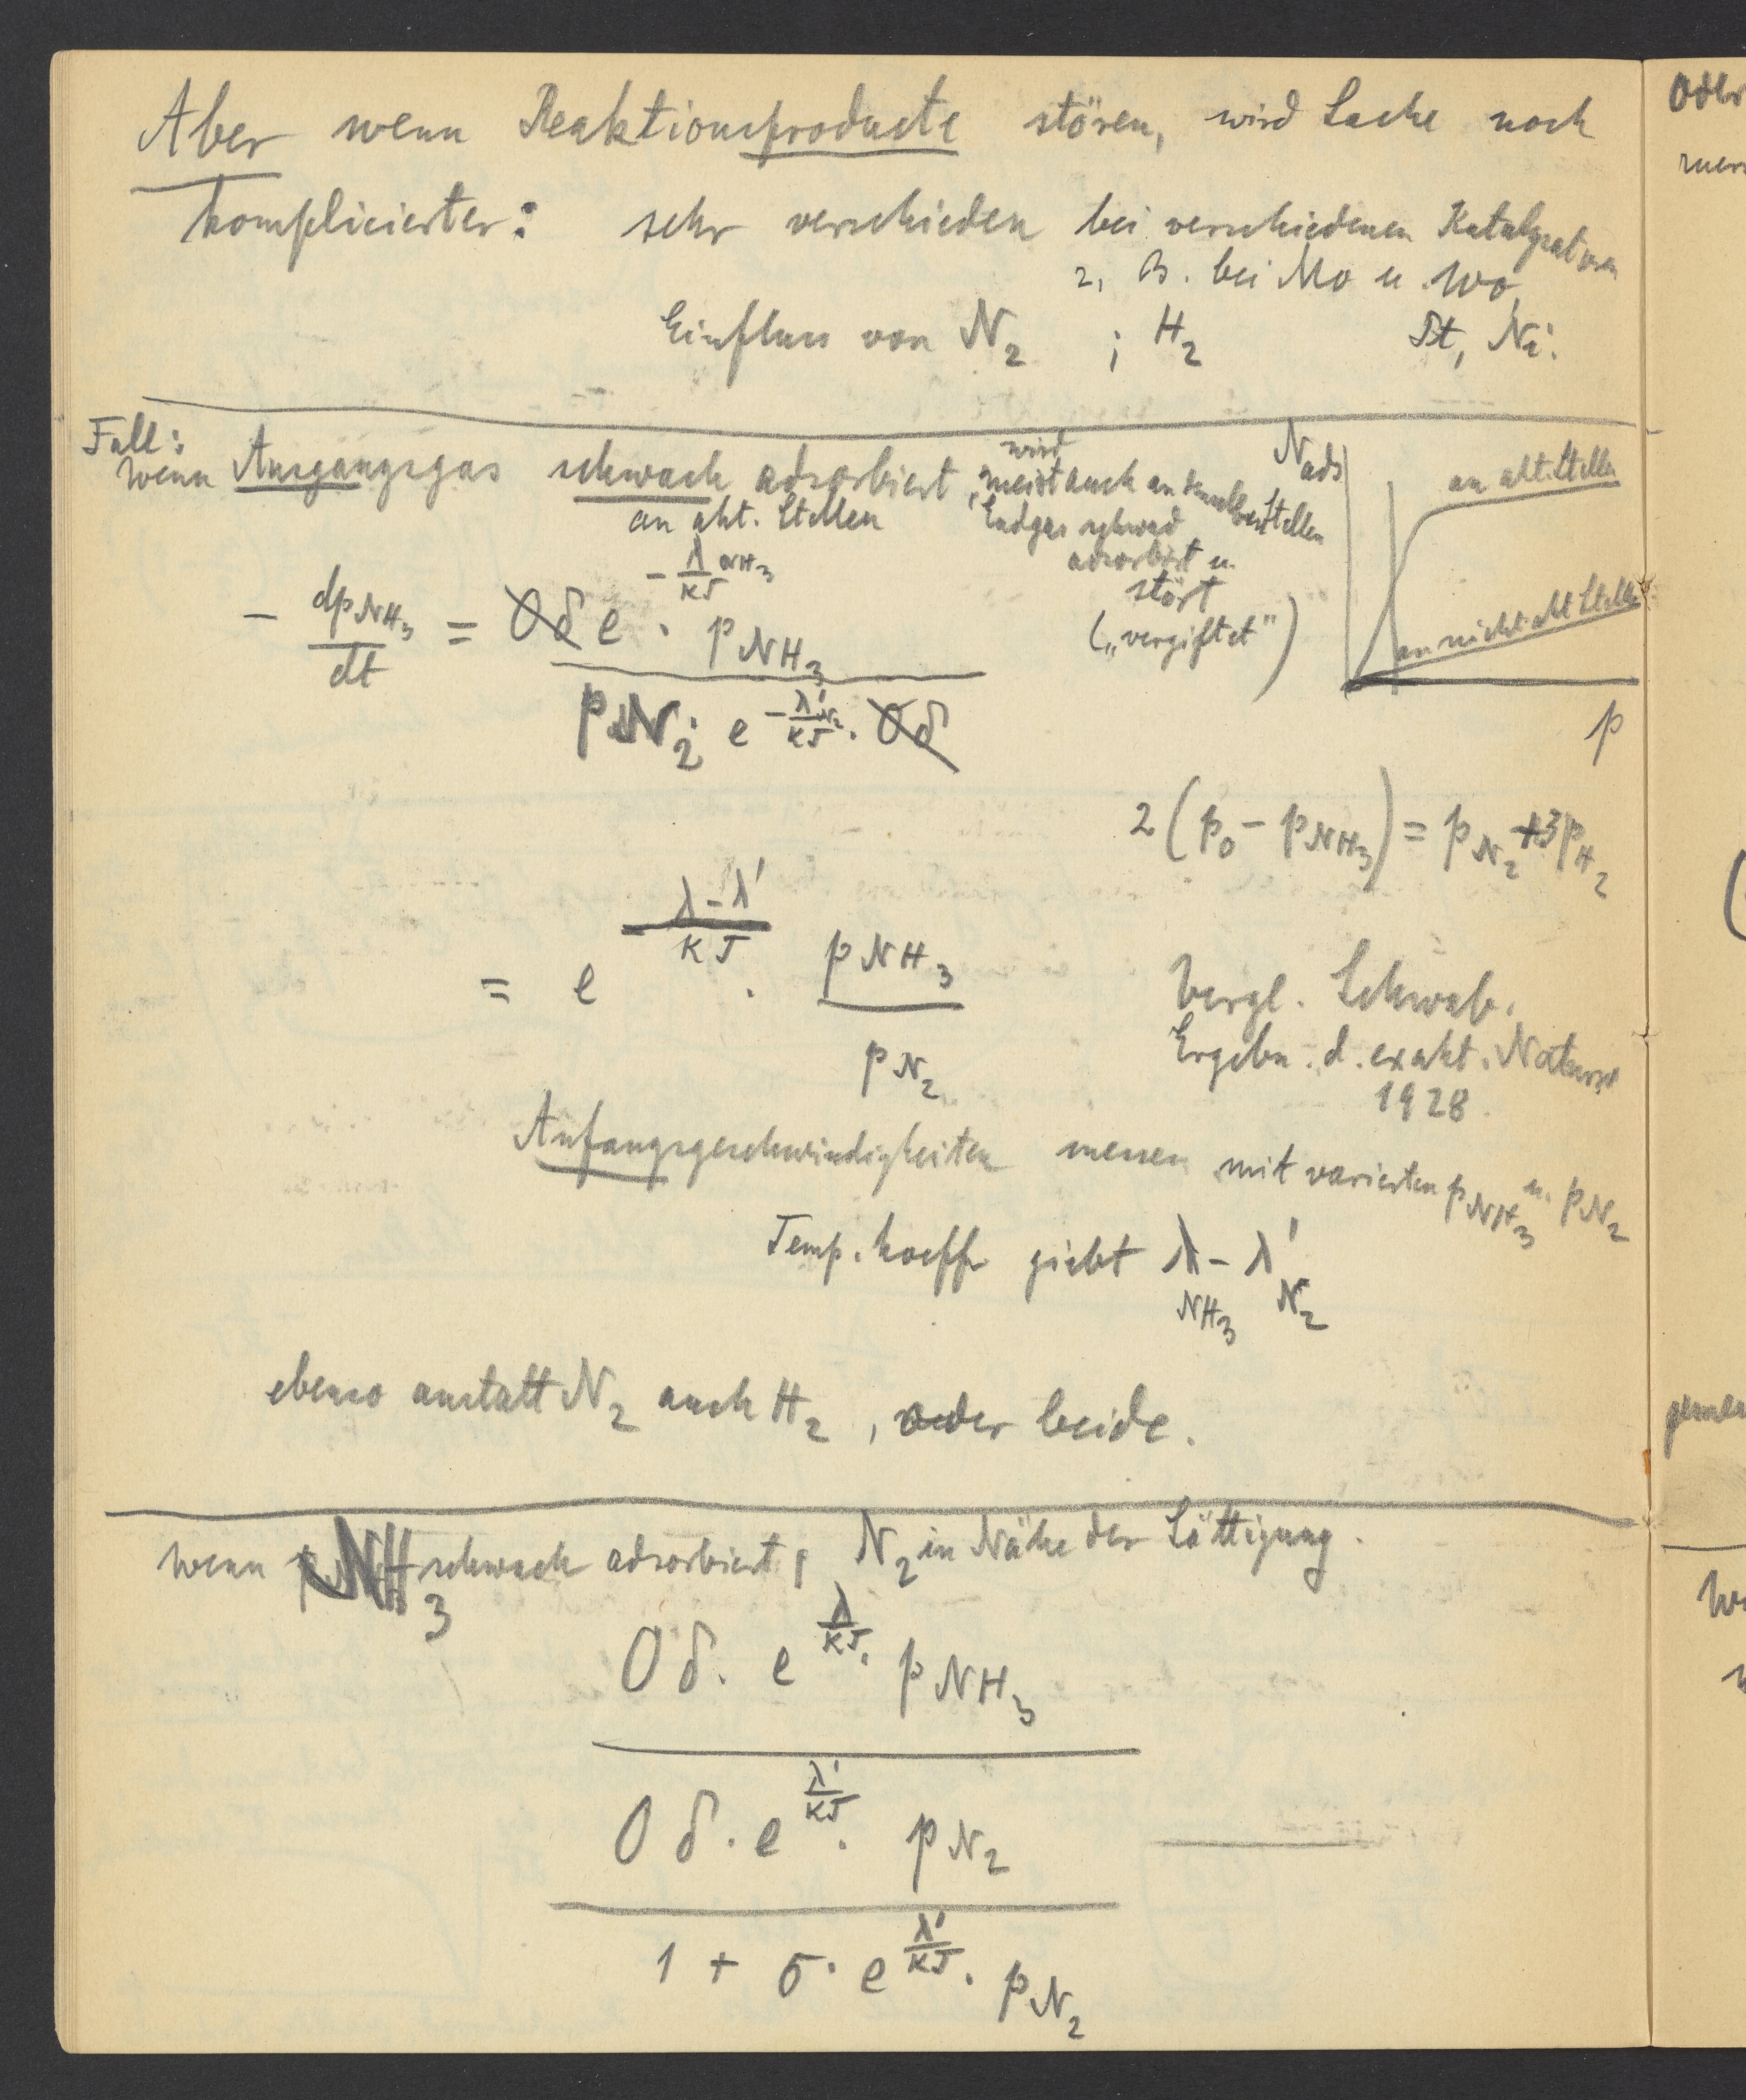 Aber wenn Reaktionsproducte stören, wird Sache noch
komplicierter: sehr verschieden bei verschiedenen Katalysatoren
z. B. bei Mo u. Wo,
Einfluss von N₂ ; H₂ Pt, Ni.
Fall:
wenn Ausgangsgas schwach adsorbiert,
an akt. Stellen
wird
meist auch an Stellen
Endgas schwach
adsorbiert u.
stört
(„vergiftet")
N ads
an akt. Stellen
an nicht akt Stellen
p
− dp NH₃ / dt = Oδ e^(−λ NH₃ / KT) · p NH₃ / p N₂ · e^(−λ' N₂ / KT) · Oδ
2 (p₀ − p NH₃) = p N₂ + 3 p H₂
= e^(−(λ − λ') / KT) · p NH₃ / p N₂
Vergl. Schwab.
Ergebn. d. exakt. Naturw
1928.
Anfangsgeschwindigkeiten messen mit varierten p NH₃ u. p N₂
Temp. koeff giebt λ NH₃ − λ' N₂
ebenso anstatt N₂ auch H₂, oder beide.
wenn NH₃ schwach adsorbiert, N₂ in Nähe der Sättigung.
Oδ · e^(λ / KT) · p NH₃
Oδ · e^(λ' / KT) · p N₂
1 + σ · e^(λ' / KT) · p N₂